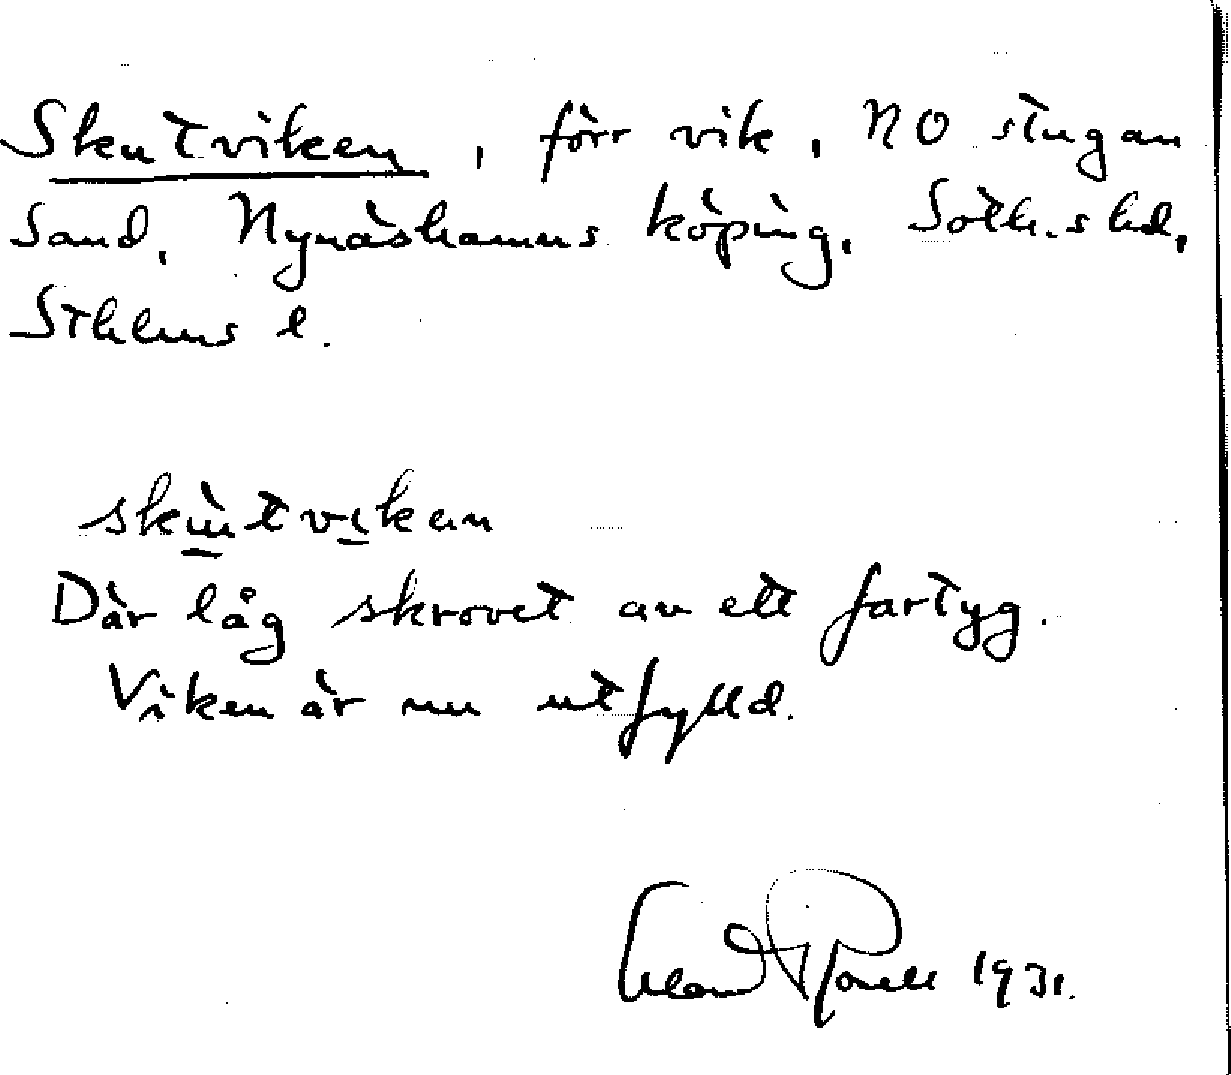 Skutviken, förr vik, NO stugan
Sand, Nynäshamns köping, Soth.s hd,
Sthlms l.
skùtvikan
Där låg skrovet av ett fartyg.
Viken är nu utfylld.
1931.